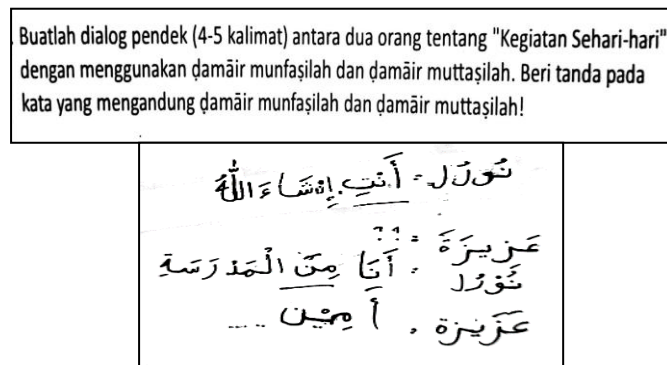 . Buatlah dialog pendek (4-5 kalimat) antara dua orang tentang "Kegiatan Sehari-hari"
dengan menggunakan ḍamāir munfaṣilah dan ḍamāir muttaṣilah. Beri tanda pada
kata yang mengandung ḍamāir munfaṣilah dan ḍamāir muttaṣilah!
نُوْرُل : أَنْتِ إِنْشَاءَ اللّٰهُ
عَزِيزَةَ : ؟؟
نُوْرُل : أَنَا مِنَ الْمَدْرَسَةِ
عَزِيْزَة : أَمِيْن ....